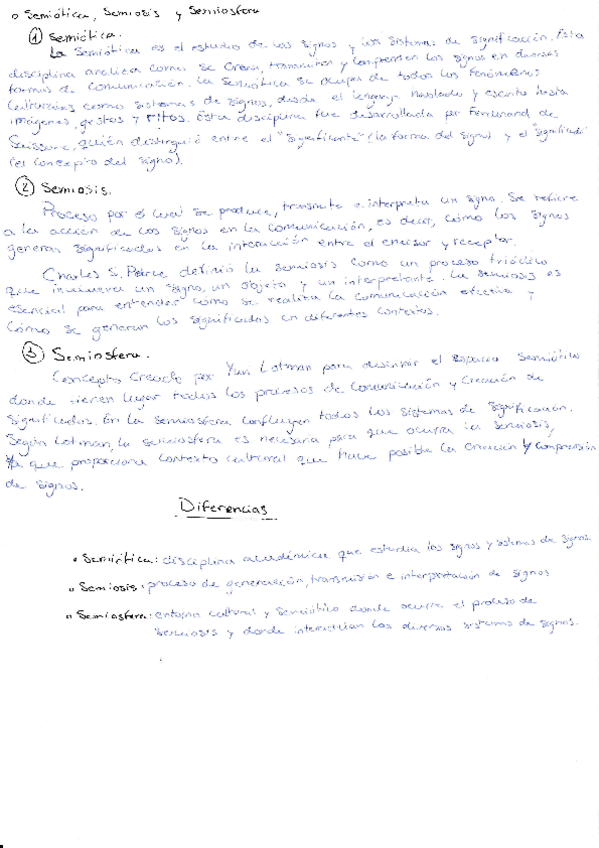 o Semiótica, Semiosis y Semiosfera
① Semiótica.
La Semiótica es el estudio de los signos y los sistemas de significación. Esta
disciplina analiza como se crean, transmiten y comprenden los signos en diversas
formas de comunicación. La Semiótica se ocupa de todos los fenómenos
culturales como sistemas de signos, desde el lenguaje hablado y escrito hasta
imágenes, gestos y ritos. Esta disciplina fue desarrollada por Ferdinand de
Saussure, quién distinguió entre el "significante" (la forma del signo) y el "significado"
(el concepto del signo).
② Semiosis.
Proceso por el cual se produce, transmite e interpreta un signo. Se refiere
a la acción de los signos en la comunicación, es decir, cómo los signos
generan significados en la interacción entre el emisor y receptor.
Charles S. Peirce definió la semiosis como un proceso triádico
que involucra un signo, un objeto y un interpretante. La semiosis es
esencial para entender cómo se realiza la comunicación efectiva y
cómo se generan los significados en diferentes contextos.
③ Semiosfera.
Concepto creado por Yuri Lotman para el espacio semiótico
donde tienen lugar todos los procesos de comunicación y creación de
significados. En la semiosfera confluyen todos los sistemas de significación.
Según Lotman, la semiosfera es necesaria para que ocurra la semiosis,
ya que proporciona contexto cultural que hace posible la creación y comprensión
de signos.
Diferencias
• Semiótica: disciplina académica que estudia los signos y sistemas de signos.
• Semiosis: proceso de generación, transmisión e interpretación de signos
• Semiosfera: entorno cultural y semiótico donde ocurre el proceso de
semiosis y donde interactúan los diversos sistemas de signos.